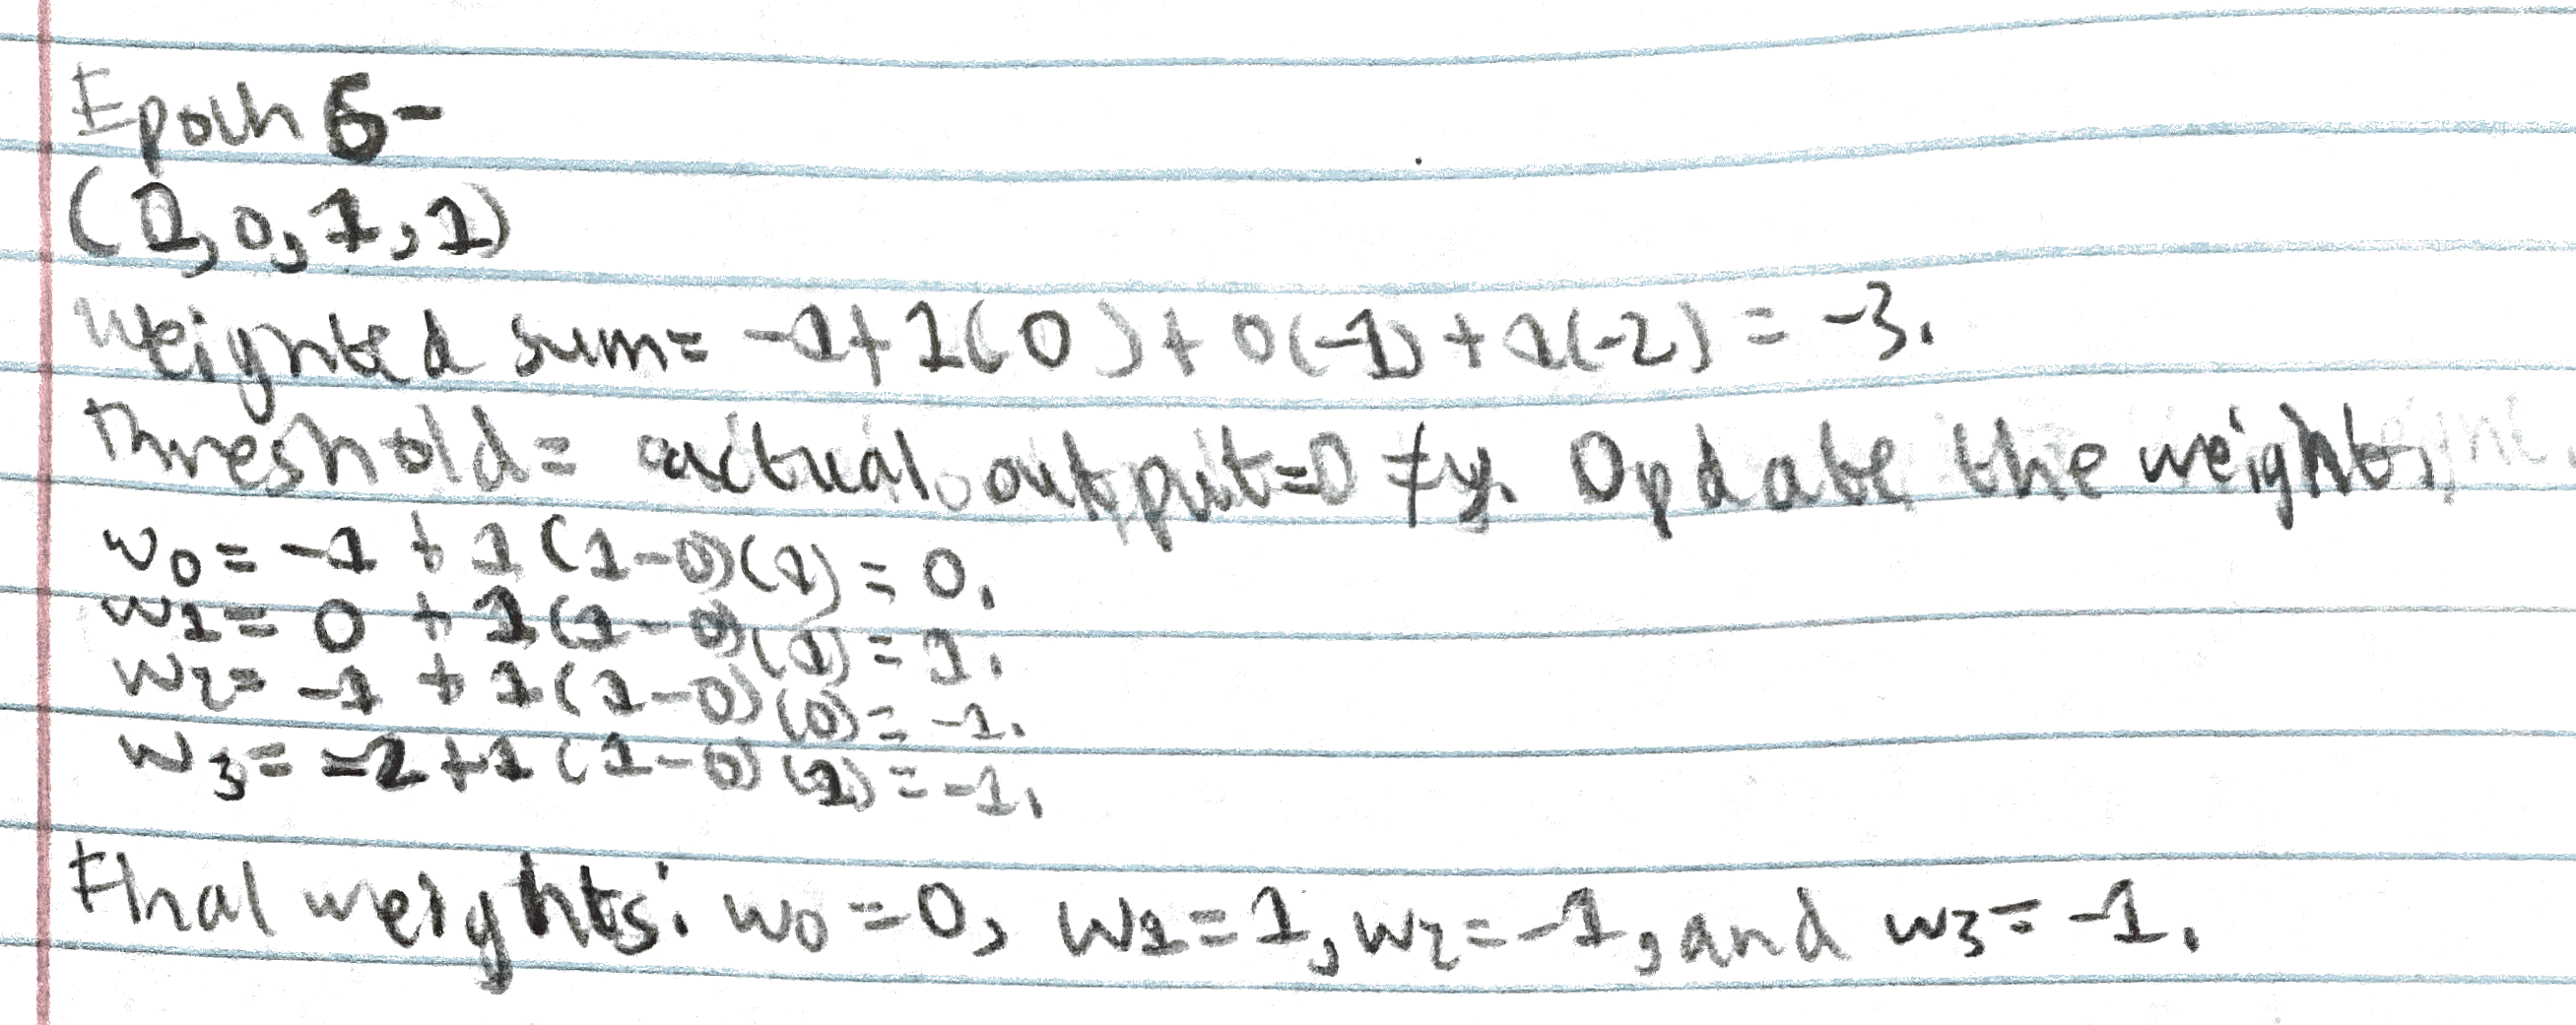 Epoch 6-
(1,0,1,1)
Weighted sum= -1+1(0)+0(-1)+1(-2)=-3.
Threshold= actual output=0≠y. Update the weights.
w0=-1+1(1-0)(1)=0.
w1=0+1(1-0)(1)=1.
w2=-1+1(1-0)(0)=-1.
w3=-2+1(1-0)(1)=-1.
Final weights: w0=0, w1=1, w2=-1, and w3=-1.